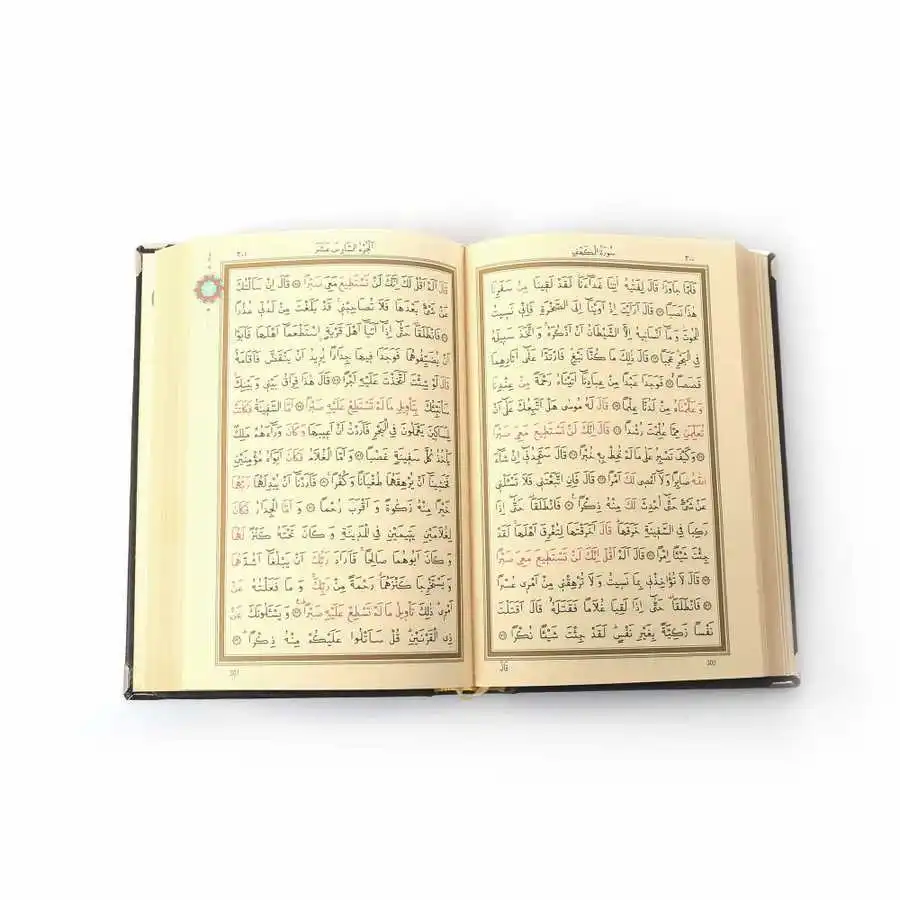 سُورَةُ الْكَهْفِ ٣٠٠
فَلَمَّا جَاوَزَا قَالَ لِفَتٰيهُ اٰتِنَا غَدَٓاءَنَا لَقَدْ لَقٖينَا مِنْ سَفَرِنَا
هٰذَا نَصَبًا ۝ قَالَ اَرَاَيْتَ اِذْ اَوَيْنَٓا اِلَى الصَّخْرَةِ فَاِنّٖي نَسٖيتُ
الْحُوتَ وَمَٓا اَنْسَانٖيهُ اِلَّا الشَّيْطَانُ اَنْ اَذْكُرَهُ وَاتَّخَذَ سَبٖيلَهُ
فِي الْبَحْرِ عَجَبًا ۝ قَالَ ذٰلِكَ مَا كُنَّا نَبْغِ فَارْتَدَّا عَلٰٓى اٰثَارِهِمَا
قَصَصًا ۝ فَوَجَدَا عَبْدًا مِنْ عِبَادِنَٓا اٰتَيْنَاهُ رَحْمَةً مِنْ عِنْدِنَا
وَعَلَّمْنَاهُ مِنْ لَدُنَّا عِلْمًا ۝ قَالَ لَهُ مُوسٰى هَلْ اَتَّبِعُكَ عَلٰٓى اَنْ
تُعَلِّمَنِ مِمَّا عُلِّمْتَ رُشْدًا ۝ قَالَ اِنَّكَ لَنْ تَسْتَطٖيعَ مَعِيَ صَبْرًا
۝ وَكَيْفَ تَصْبِرُ عَلٰى مَا لَمْ تُحِطْ بِهٖ خُبْرًا ۝ قَالَ سَتَجِدُنٖٓي اِنْ شَٓاءَ
اللّٰهُ صَابِرًا وَلَٓا اَعْصٖي لَكَ اَمْرًا ۝ قَالَ فَاِنِ اتَّبَعْتَنٖي فَلَا تَسْـَٔلْنٖي
عَنْ شَيْءٍ حَتّٰٓى اُحْدِثَ لَكَ مِنْهُ ذِكْرًا ۝ فَانْطَلَقَا حَتّٰٓى اِذَا
رَكِبَا فِي السَّفٖينَةِ خَرَقَهَا قَالَ اَخَرَقْتَهَا لِتُغْرِقَ اَهْلَهَا لَقَدْ
جِئْتَ شَيْـًٔا اِمْرًا ۝ قَالَ اَلَمْ اَقُلْ اِنَّكَ لَنْ تَسْتَطٖيعَ مَعِيَ صَبْرًا
۝ قَالَ لَا تُؤَاخِذْنٖي بِمَا نَسٖيتُ وَلَا تُرْهِقْنٖي مِنْ اَمْرٖي عُسْرًا
۝ فَانْطَلَقَا حَتّٰٓى اِذَا لَقِيَا غُلَامًا فَقَتَلَهُ قَالَ اَقَتَلْتَ
نَفْسًا زَكِيَّةً بِغَيْرِ نَفْسٍ لَقَدْ جِئْتَ شَيْـًٔا نُكْرًا ۝
اَلْجُزْءُ السَّادِسَ عَشَرَ ٣٠١
قَالَ اَلَمْ اَقُلْ لَكَ اِنَّكَ لَنْ تَسْتَطٖيعَ مَعِيَ صَبْرًا ۝ قَالَ اِنْ سَاَلْتُكَ
عَنْ شَيْءٍ بَعْدَهَا فَلَا تُصَاحِبْنٖي قَدْ بَلَغْتَ مِنْ لَدُنّٖي عُذْرًا
۝ فَانْطَلَقَا حَتّٰٓى اِذَٓا اَتَيَٓا اَهْلَ قَرْيَةٍ اسْتَطْعَمَٓا اَهْلَهَا فَاَبَوْا
اَنْ يُضَيِّفُوهُمَا فَوَجَدَا فٖيهَا جِدَارًا يُرٖيدُ اَنْ يَنْقَضَّ فَاَقَامَهُ
قَالَ لَوْ شِئْتَ لَتَّخَذْتَ عَلَيْهِ اَجْرًا ۝ قَالَ هٰذَا فِرَاقُ بَيْنٖي وَبَيْنِكَ
سَاُنَبِّئُكَ بِتَأْوٖيلِ مَا لَمْ تَسْتَطِعْ عَلَيْهِ صَبْرًا ۝ اَمَّا السَّفٖينَةُ فَكَانَتْ
لِمَسَاكٖينَ يَعْمَلُونَ فِي الْبَحْرِ فَاَرَدْتُ اَنْ اَعٖيبَهَا وَكَانَ وَرَٓاءَهُمْ مَلِكٌ
يَأْخُذُ كُلَّ سَفٖينَةٍ غَصْبًا ۝ وَاَمَّا الْغُلَامُ فَكَانَ اَبَوَاهُ مُؤْمِنَيْنِ
فَخَشٖينَٓا اَنْ يُرْهِقَهُمَا طُغْيَانًا وَكُفْرًا ۝ فَاَرَدْنَٓا اَنْ يُبْدِلَهُمَا رَبُّهُمَا
خَيْرًا مِنْهُ زَكٰوةً وَاَقْرَبَ رُحْمًا ۝ وَاَمَّا الْجِدَارُ فَكَانَ
لِغُلَامَيْنِ يَتٖيمَيْنِ فِي الْمَدٖينَةِ وَكَانَ تَحْتَهُ كَنْزٌ لَهُمَا
وَكَانَ اَبُوهُمَا صَالِحًا فَاَرَادَ رَبُّكَ اَنْ يَبْلُغَٓا اَشُدَّهُمَا
وَيَسْتَخْرِجَا كَنْزَهُمَا رَحْمَةً مِنْ رَبِّكَ وَمَا فَعَلْتُهُ عَنْ
اَمْرٖي ذٰلِكَ تَأْوٖيلُ مَا لَمْ تَسْطِعْ عَلَيْهِ صَبْرًا ۝ وَيَسْـَٔلُونَكَ عَنْ
ذِي الْقَرْنَيْنِ قُلْ سَاَتْلُوا عَلَيْكُمْ مِنْهُ ذِكْرًا ۝
301
300